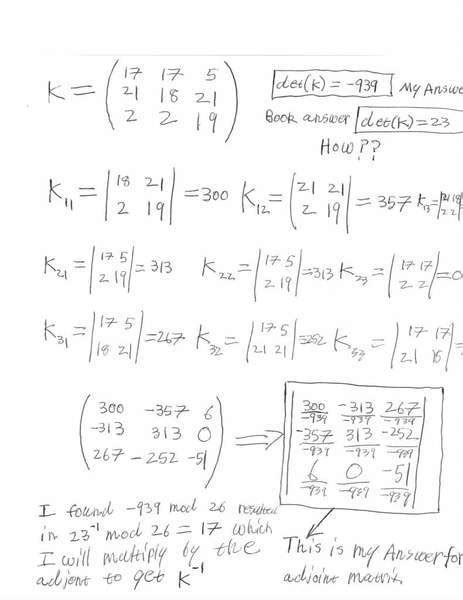 K = ( 17 17 5
21 18 21
2 2 19 )
det(K) = -939 My Answe
Book answer det(K)=23
How??
K11 = | 18 21 | = 300 K12 = ( 21 21 | = 357 K13 = | 21 18
2 19 | 2 19 | 2 2 |
K21 = | 17 5 | = 313 K22 = | 17 5 | =313 K23 = | 17 17 | =0
2 19 | 2 19 | 2 2 |
K31 = | 17 5 | =267 K32 = | 17 5 | =252 K53 = | 17 17 | =
18 21 | 21 21 | 21 18 |
( 300 -357 6
-313 313 0
267 -252 -51 )
⇒
| 300/-939 -313/-939 267/-939 |
| -357/-939 313/-939 -252/-939 |
| 6/-939 0/-939 -51/-939 |
I found -939 mod 26 resulted
in 23^-1 mod 26 = 17 which
I will multiply by the
adjont to get K^-1
This is my Answer for
adjoint matrix